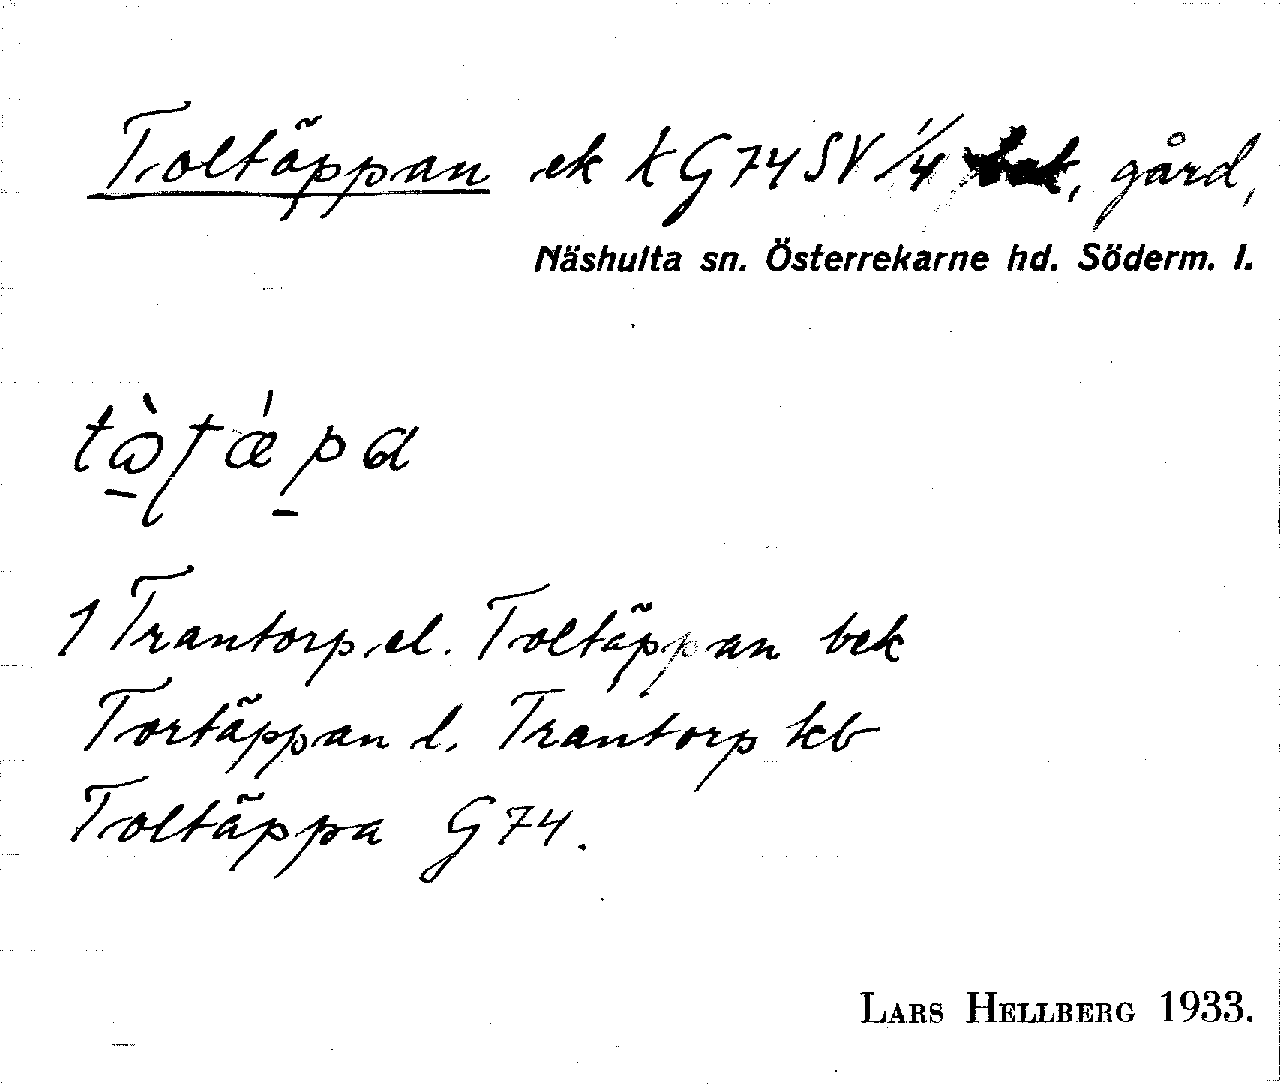 Toltäppan ek k G74 SV 1/4 bek, gård,
Näshulta sn. Österrekarne hd. Söderm. l.
1 Trantorp el. Toltäppan bek
Tortäppan l. Trantorp kb
Toltäppa G74.
LARS HELLBERG 1933.